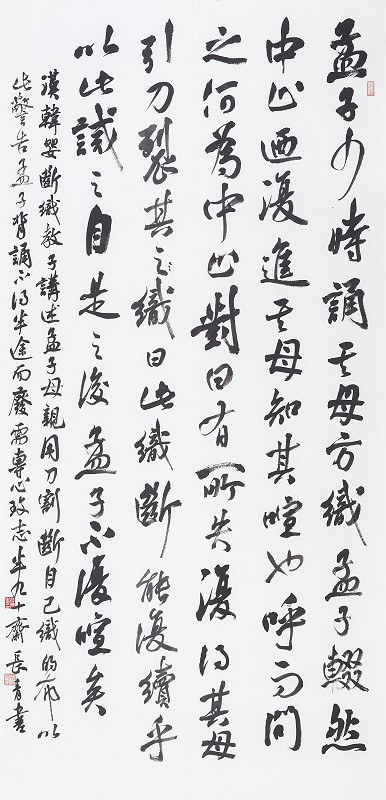 孟子少時誦其母方織孟子輟然
中止迺復進其母知其喧也呼而問
之何為中止對曰有所失復得其母
引刀裂其之織曰此織斷能復續乎
以此誡之自是之後孟子不復喧矣
漢韓嬰斷織教子講述孟子母親用刀割斷自己織的布以
此警告孟子背誦不得半途而廢需專心致志半九十齋長青書